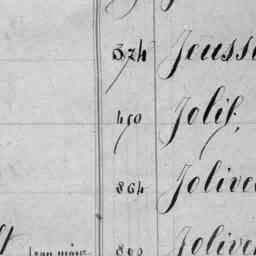 374 Jeusse
450 Jolif,
864 Jolive
800 Jolive